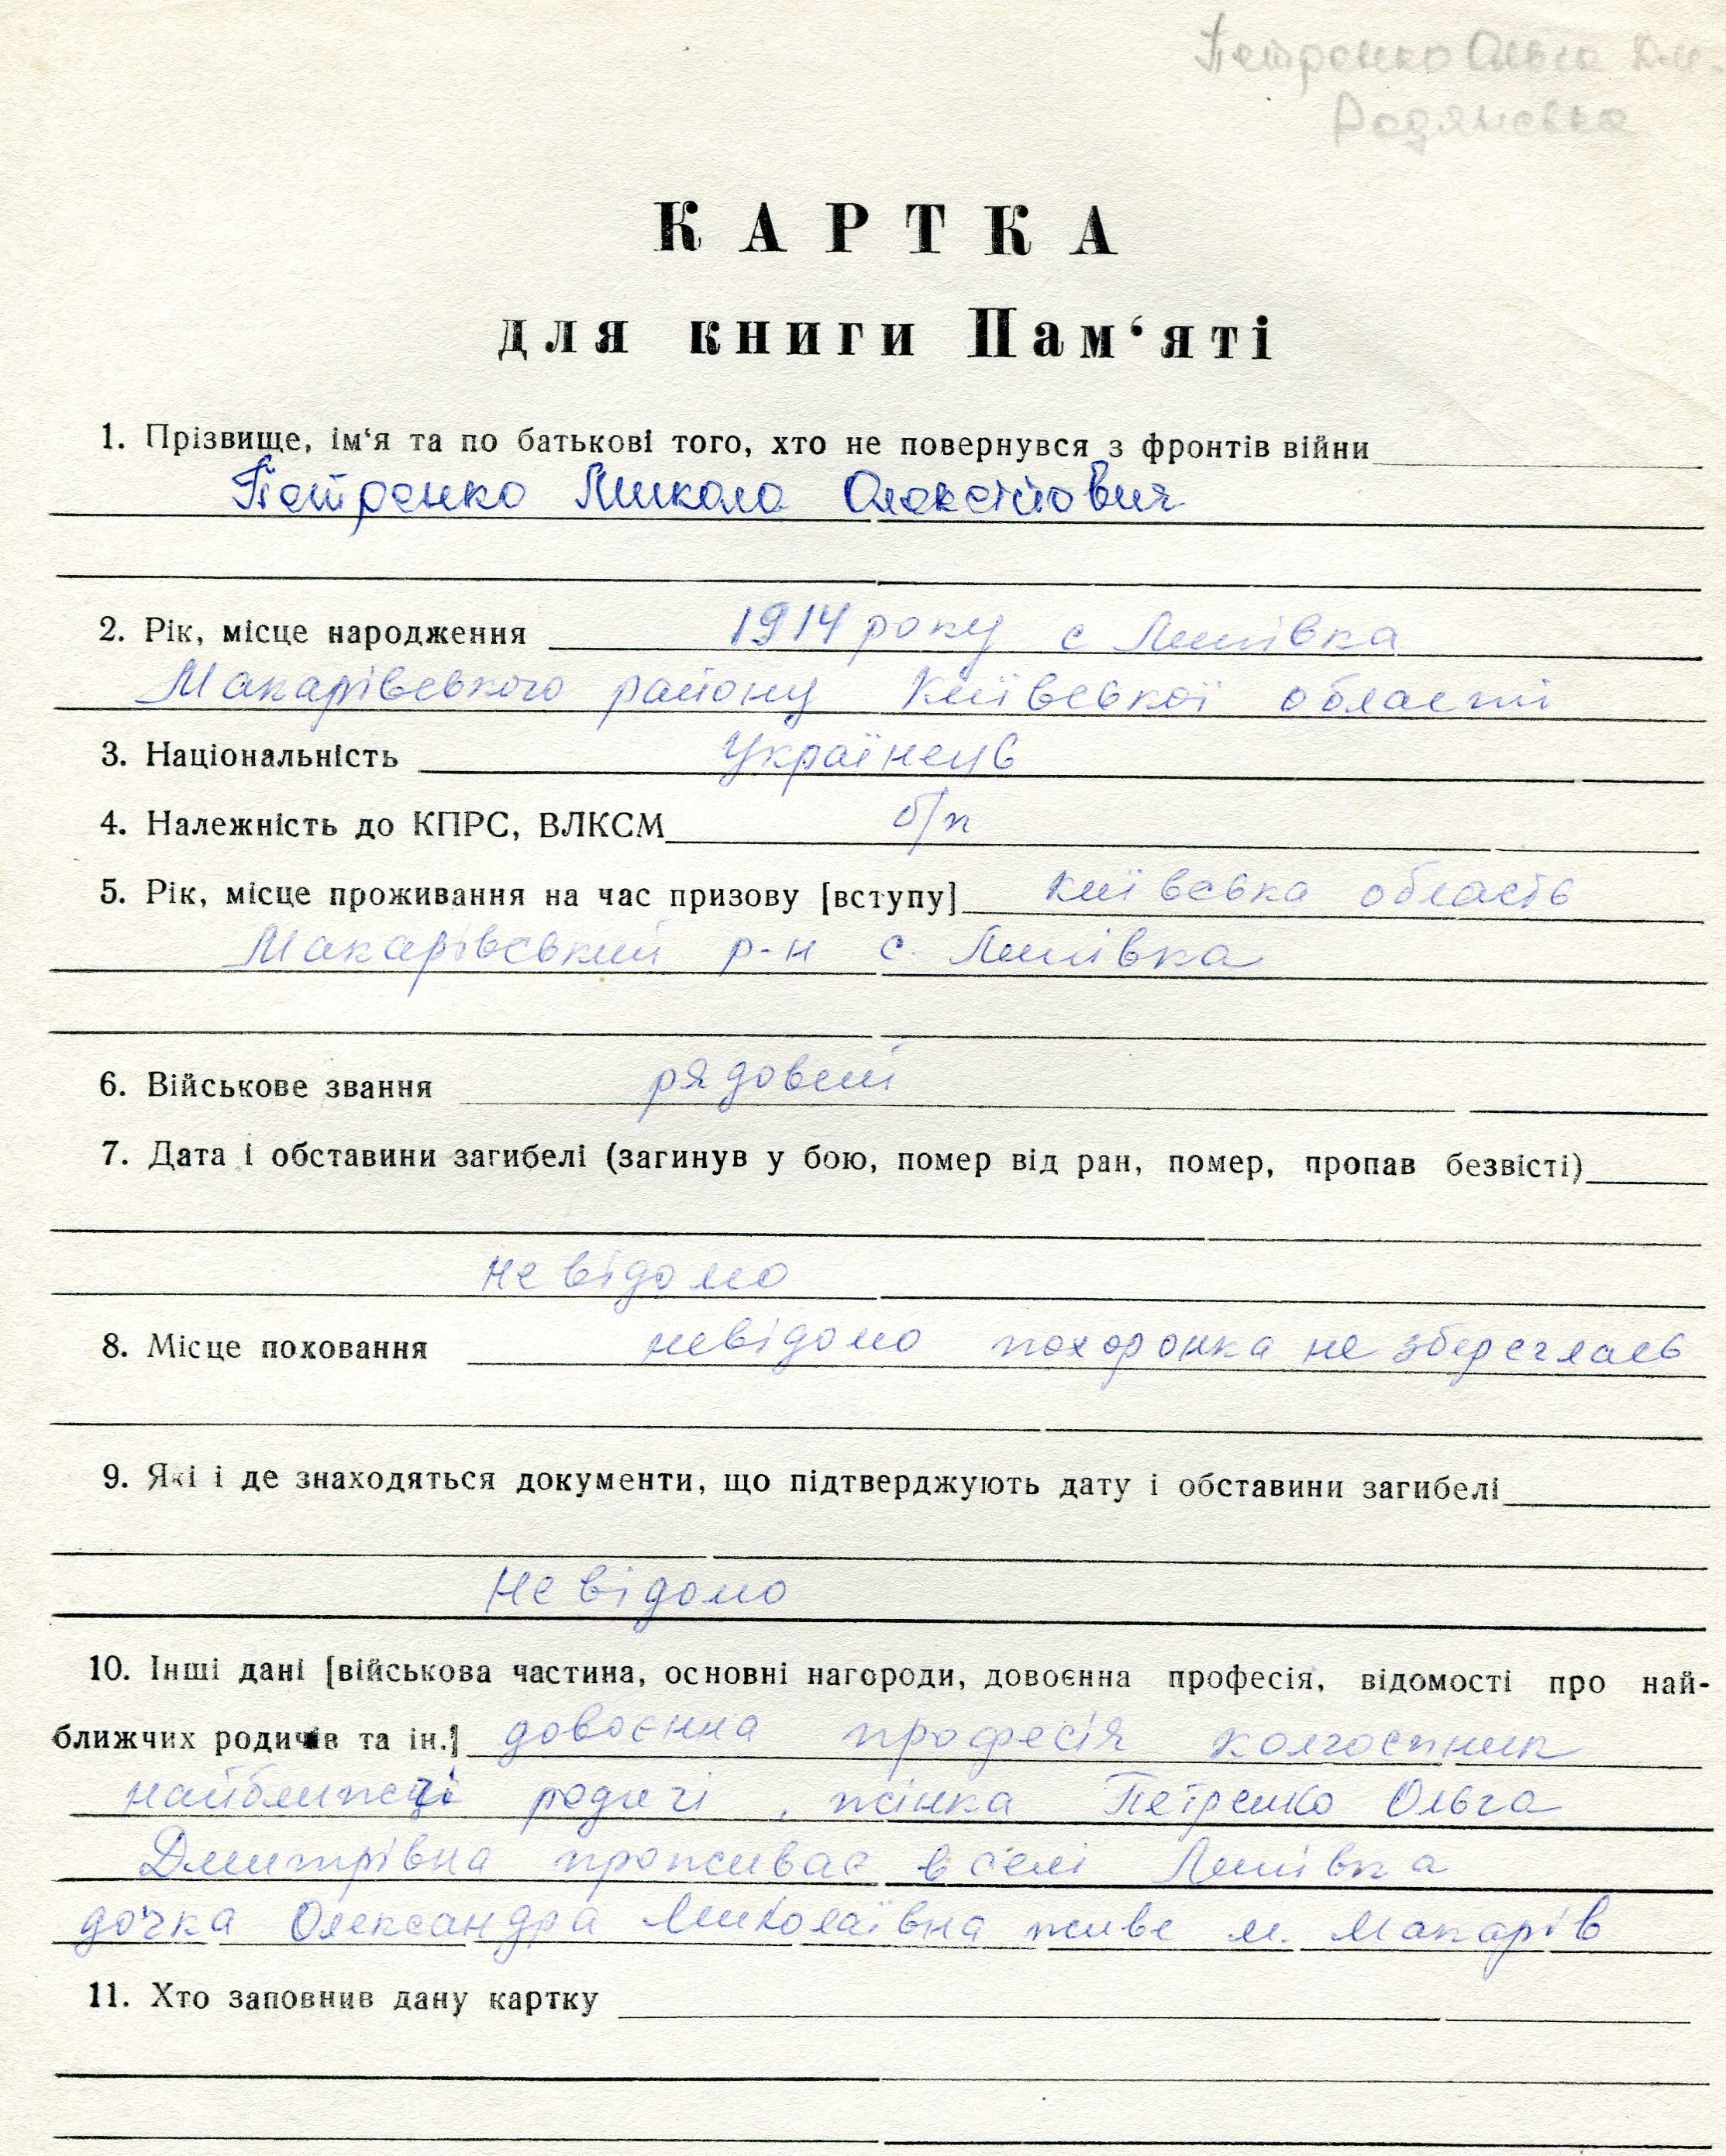 Петренко Ольга Дм.
КАРТКА
для книги Пам‘яті
1. Прізвище, ім‘я та по батькові того, хто не повернувся з фронтів війни
Петренко Микола Олексійович
2. Рік, місце народження 1914 року с Липівка
Макарівського району Київської області
3. Національність Українець
4. Належність до КПРС, ВЛКСМ б/п
5. Рік, місце проживання на час призову [вступу] Київська область
Макарівський р-н с. Липівка
6. Військове звання рядовий
7. Дата і обставини загибелі (загинув у бою, помер від ран, помер, пропав безвісті)
невідомо
8. Місце поховання невідомо похоронка не збереглась
9. Які і де знаходяться документи, що підтверджують дату і обставини загибелі
Невідомо
10. Інші дані [військова частина, основні нагороди, довоєнна професія, відомості про най-
ближчих родичів та ін.] довоєнна професія колгоспник
найближчі родичі, жінка Петренко Ольга
Дмитрівна проживає в селі Липівка
дочка Олександра Миколаївна живе м. Макарів
11. Хто заповнив дану картку